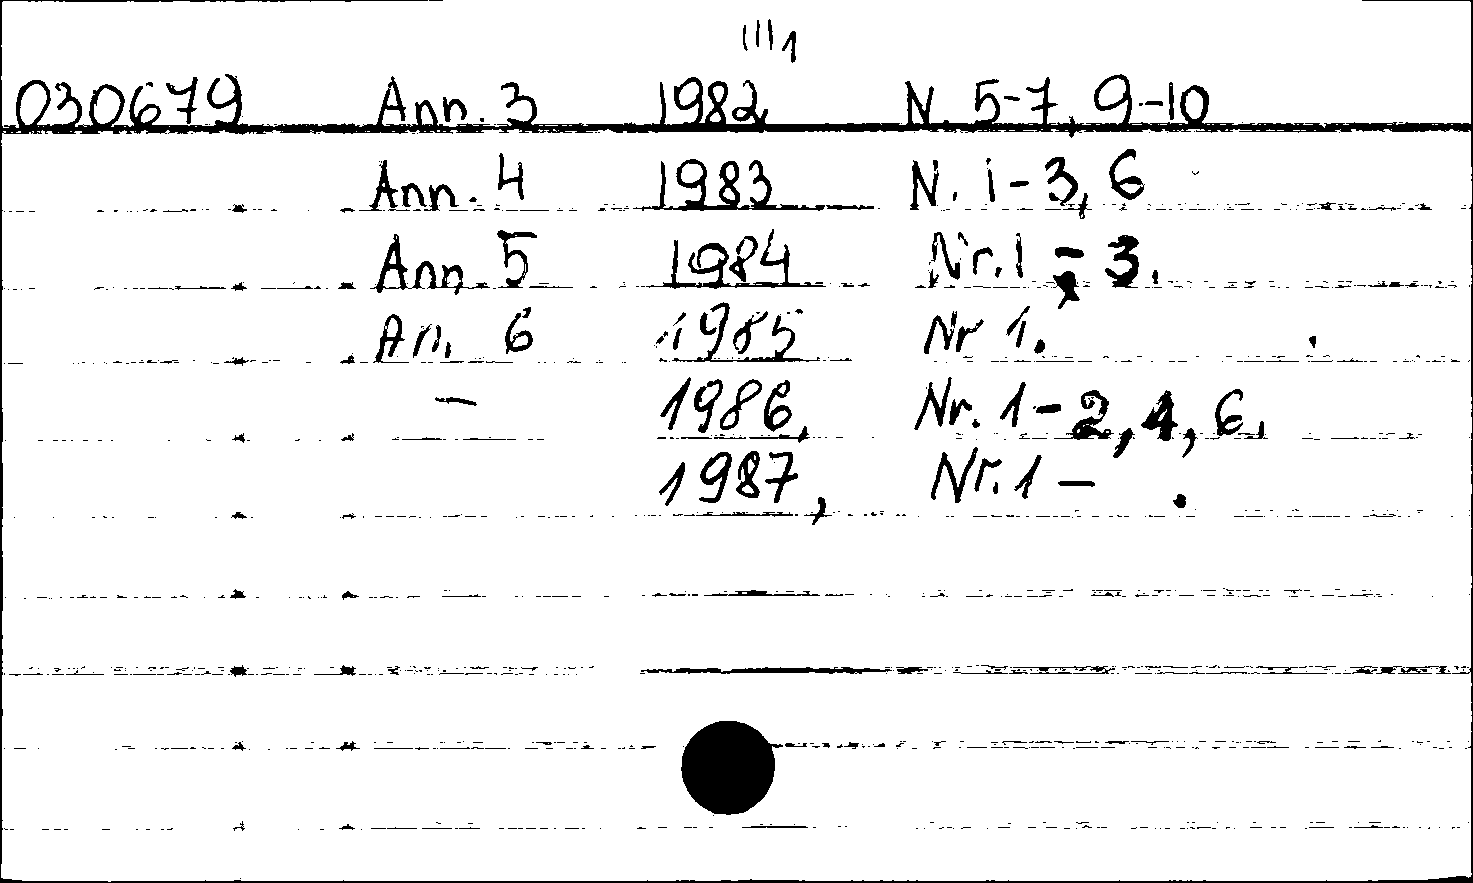 III1
030679 Ann. 3 1982 N. 5-7, 9-10
Ann. 4 1983 N. 1-3, 6
Ann. 5 1984 Nr. 1-3.
An. 6 1985 Nr 1.
— 1986, Nr. 1-2, 4, 6.
1987, Nr. 1- .